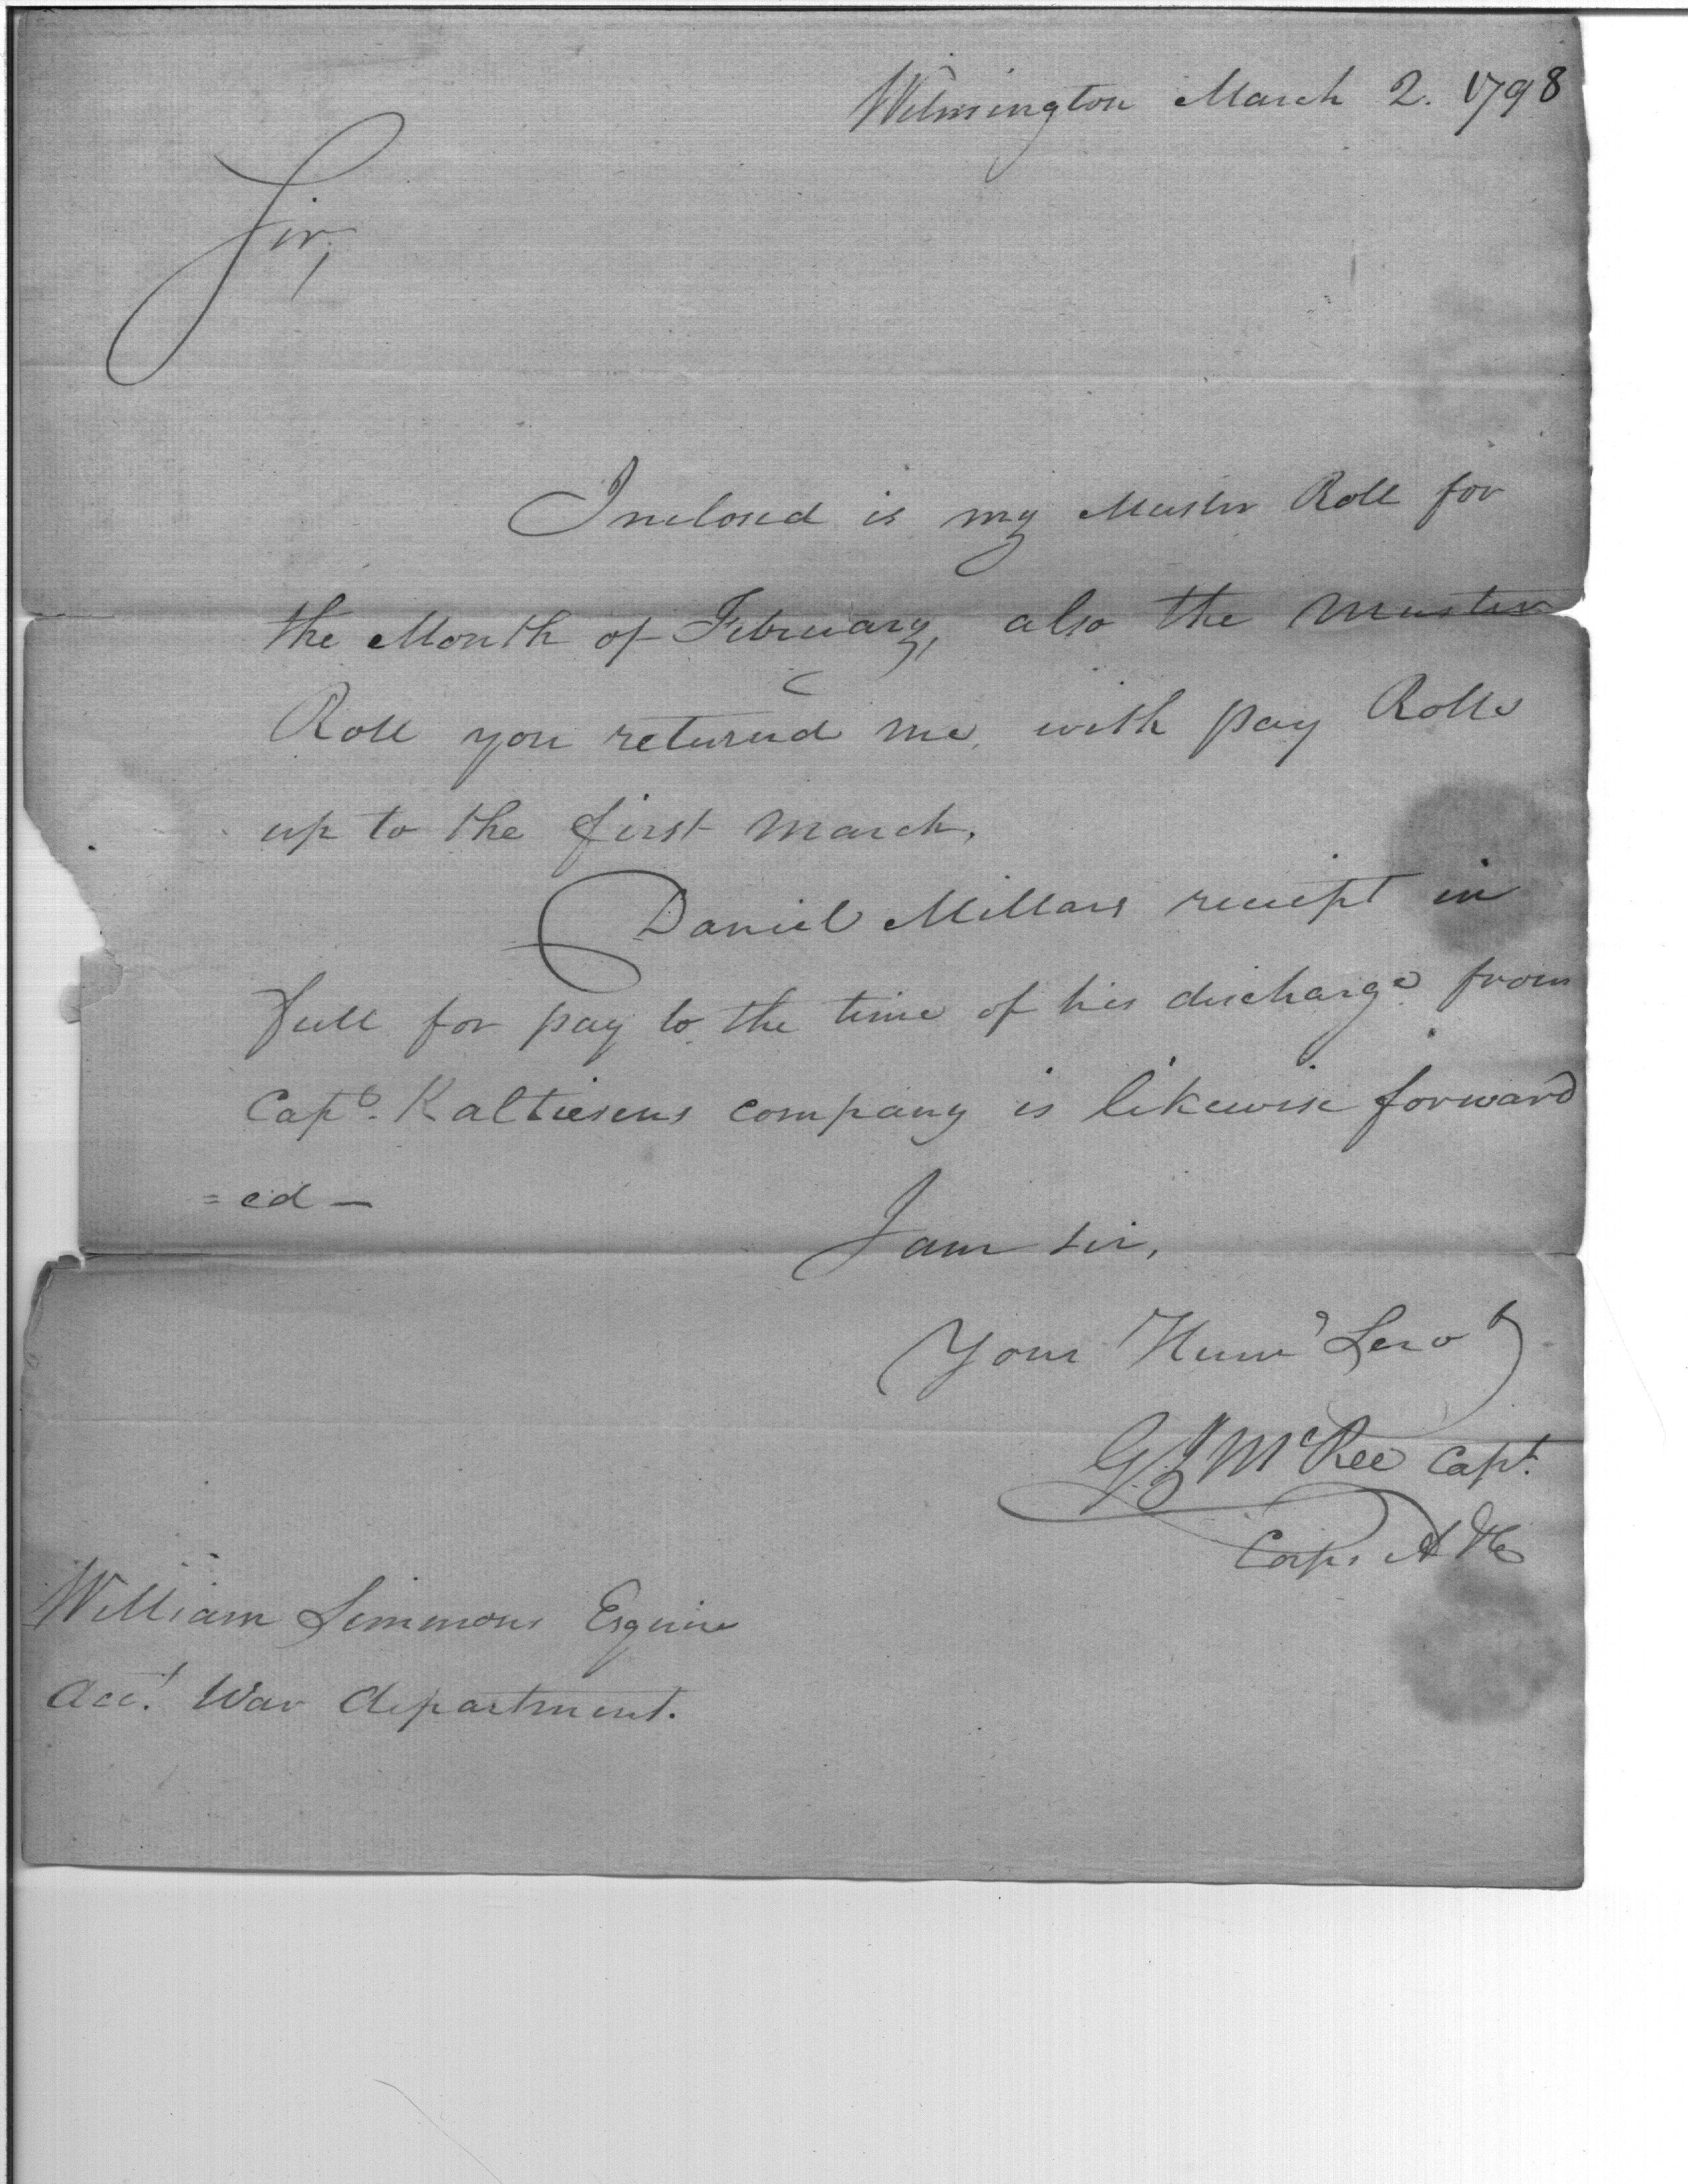 Wilmington March 2. 1798
Sir,
Inclosed is my Muster Roll for
the Month of February, also the Muster
Roll you returned me, with pay Rolls
up to the first March.
Daniel Millars receipt in
full for pay to the time of his discharge from
Capt. Kaltiesens company is likewise forward
=ed—
I am sir,
Your Hum Serv
G J McRee Capt.
Corps A &
William Simmons Esquire
Acct. War department.